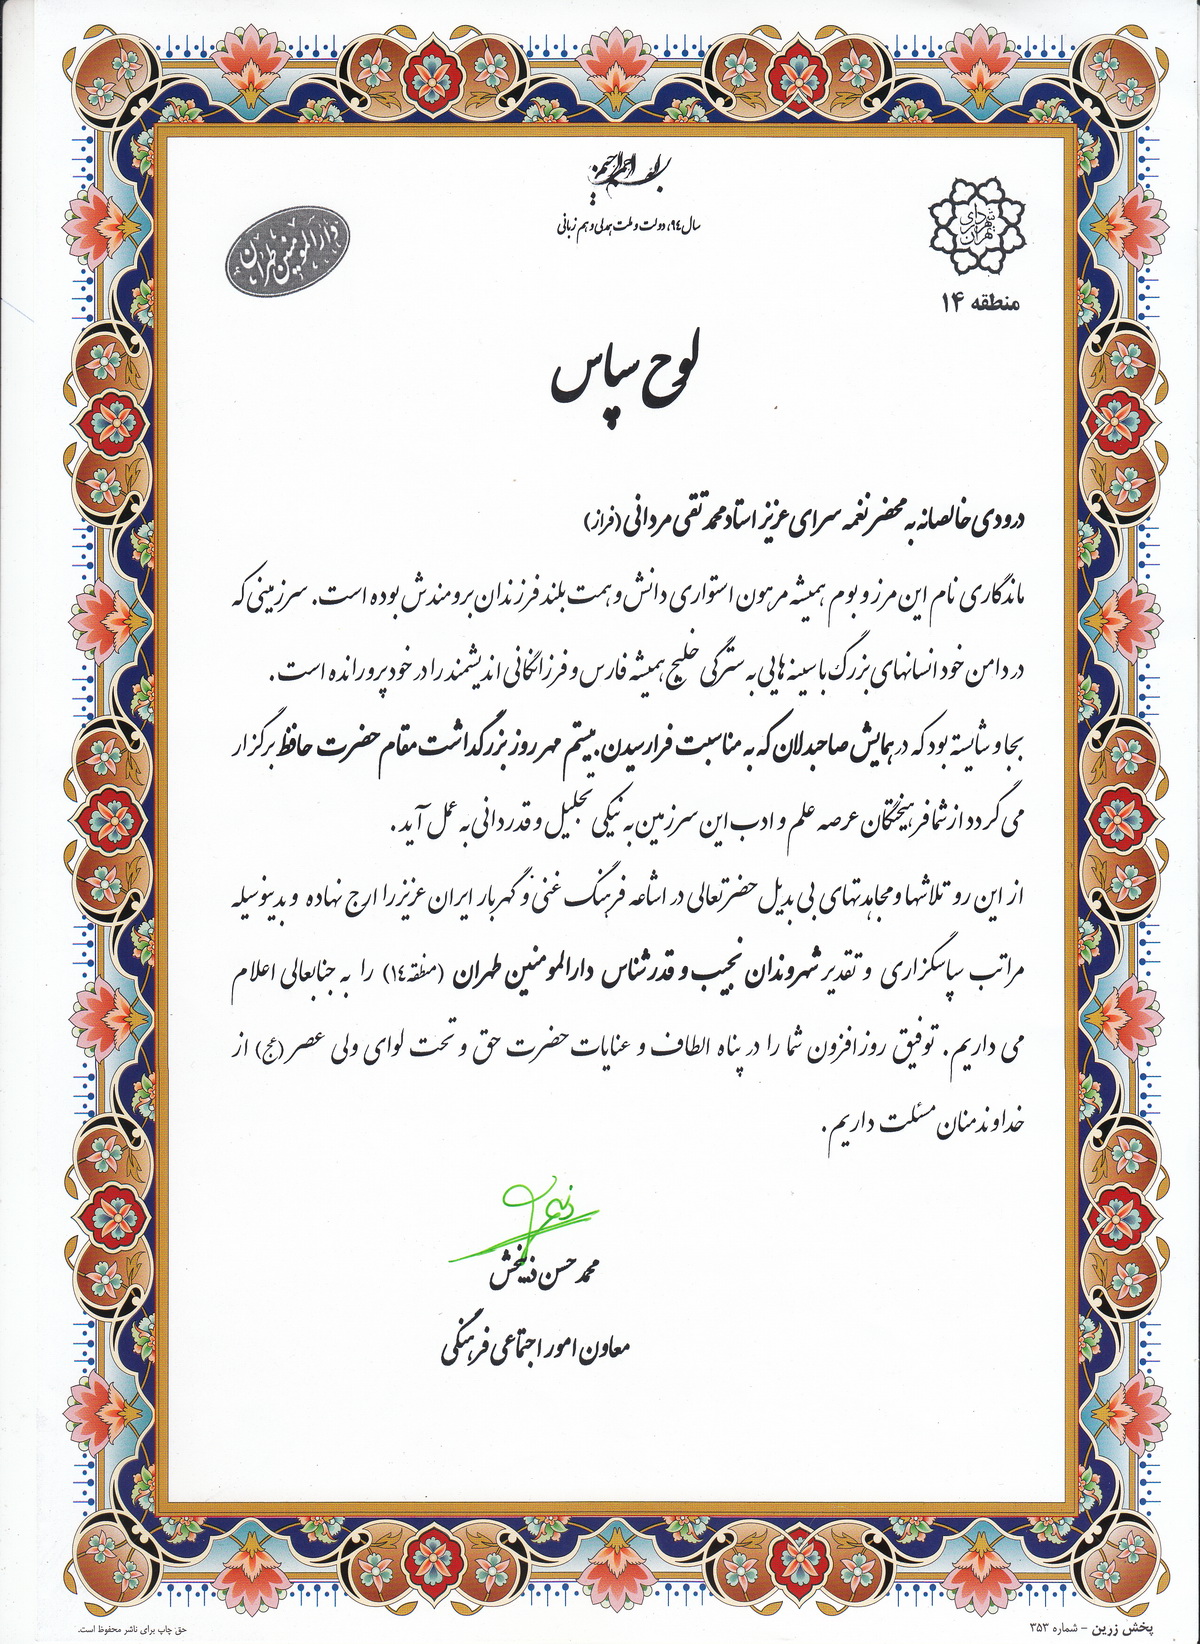 بسم الله الرحمن الرحیم
سال ٩٤، دولت و ملت همدلی و هم زبانی
شهرداری تهران
منطقه ۱۴
دارالمومنین طهران
لوح سپاس
درودی خالصانه به محضر نغمه سرای عزیز استاد محمد تقی مردانی (فراز)
ماندگاری نام این مرز و بوم همیشه مرهون استواری دانش و همت بلند فرزندان برومندش بوده است. سرزمینی که
در دامن خود انسانهای بزرگ با سینه هایی به سترگی خلیج همیشه فارس و فرزانگانی اندیشمند را در خود پرورانده است.
بجا و شایسته بود که در همایش صاحبدلان که به مناسبت فرارسیدن بیستم مهر روز بزرگداشت مقام حضرت حافظ برگزار
می گردد از شما فرهیختگان عرصه علم و ادب این سرزمین به نیکی تجلیل و قدردانی به عمل آید.
از این رو تلاشها و مجاهدتهای بی بدیل حضرتعالی در اشاعه فرهنگ غنی و گهربار ایران عزیز را ارج نهاده و بدینوسیله
مراتب سپاسگزاری و تقدیر شهروندان نجیب و قدرشناس دارالمومنین طهران (منطقه ١٤) را به جنابعالی اعلام
می داریم. توفیق روزافزون شما را در پناه الطاف و عنایات حضرت حق و تحت لوای ولی عصر (عج) از
خداوند منان مسئلت داریم.
محمد حسن ذیبخش
معاون امور اجتماعی فرهنگی
پخش زرین - شماره ۳۵۳
حق چاپ برای ناشر محفوظ است.